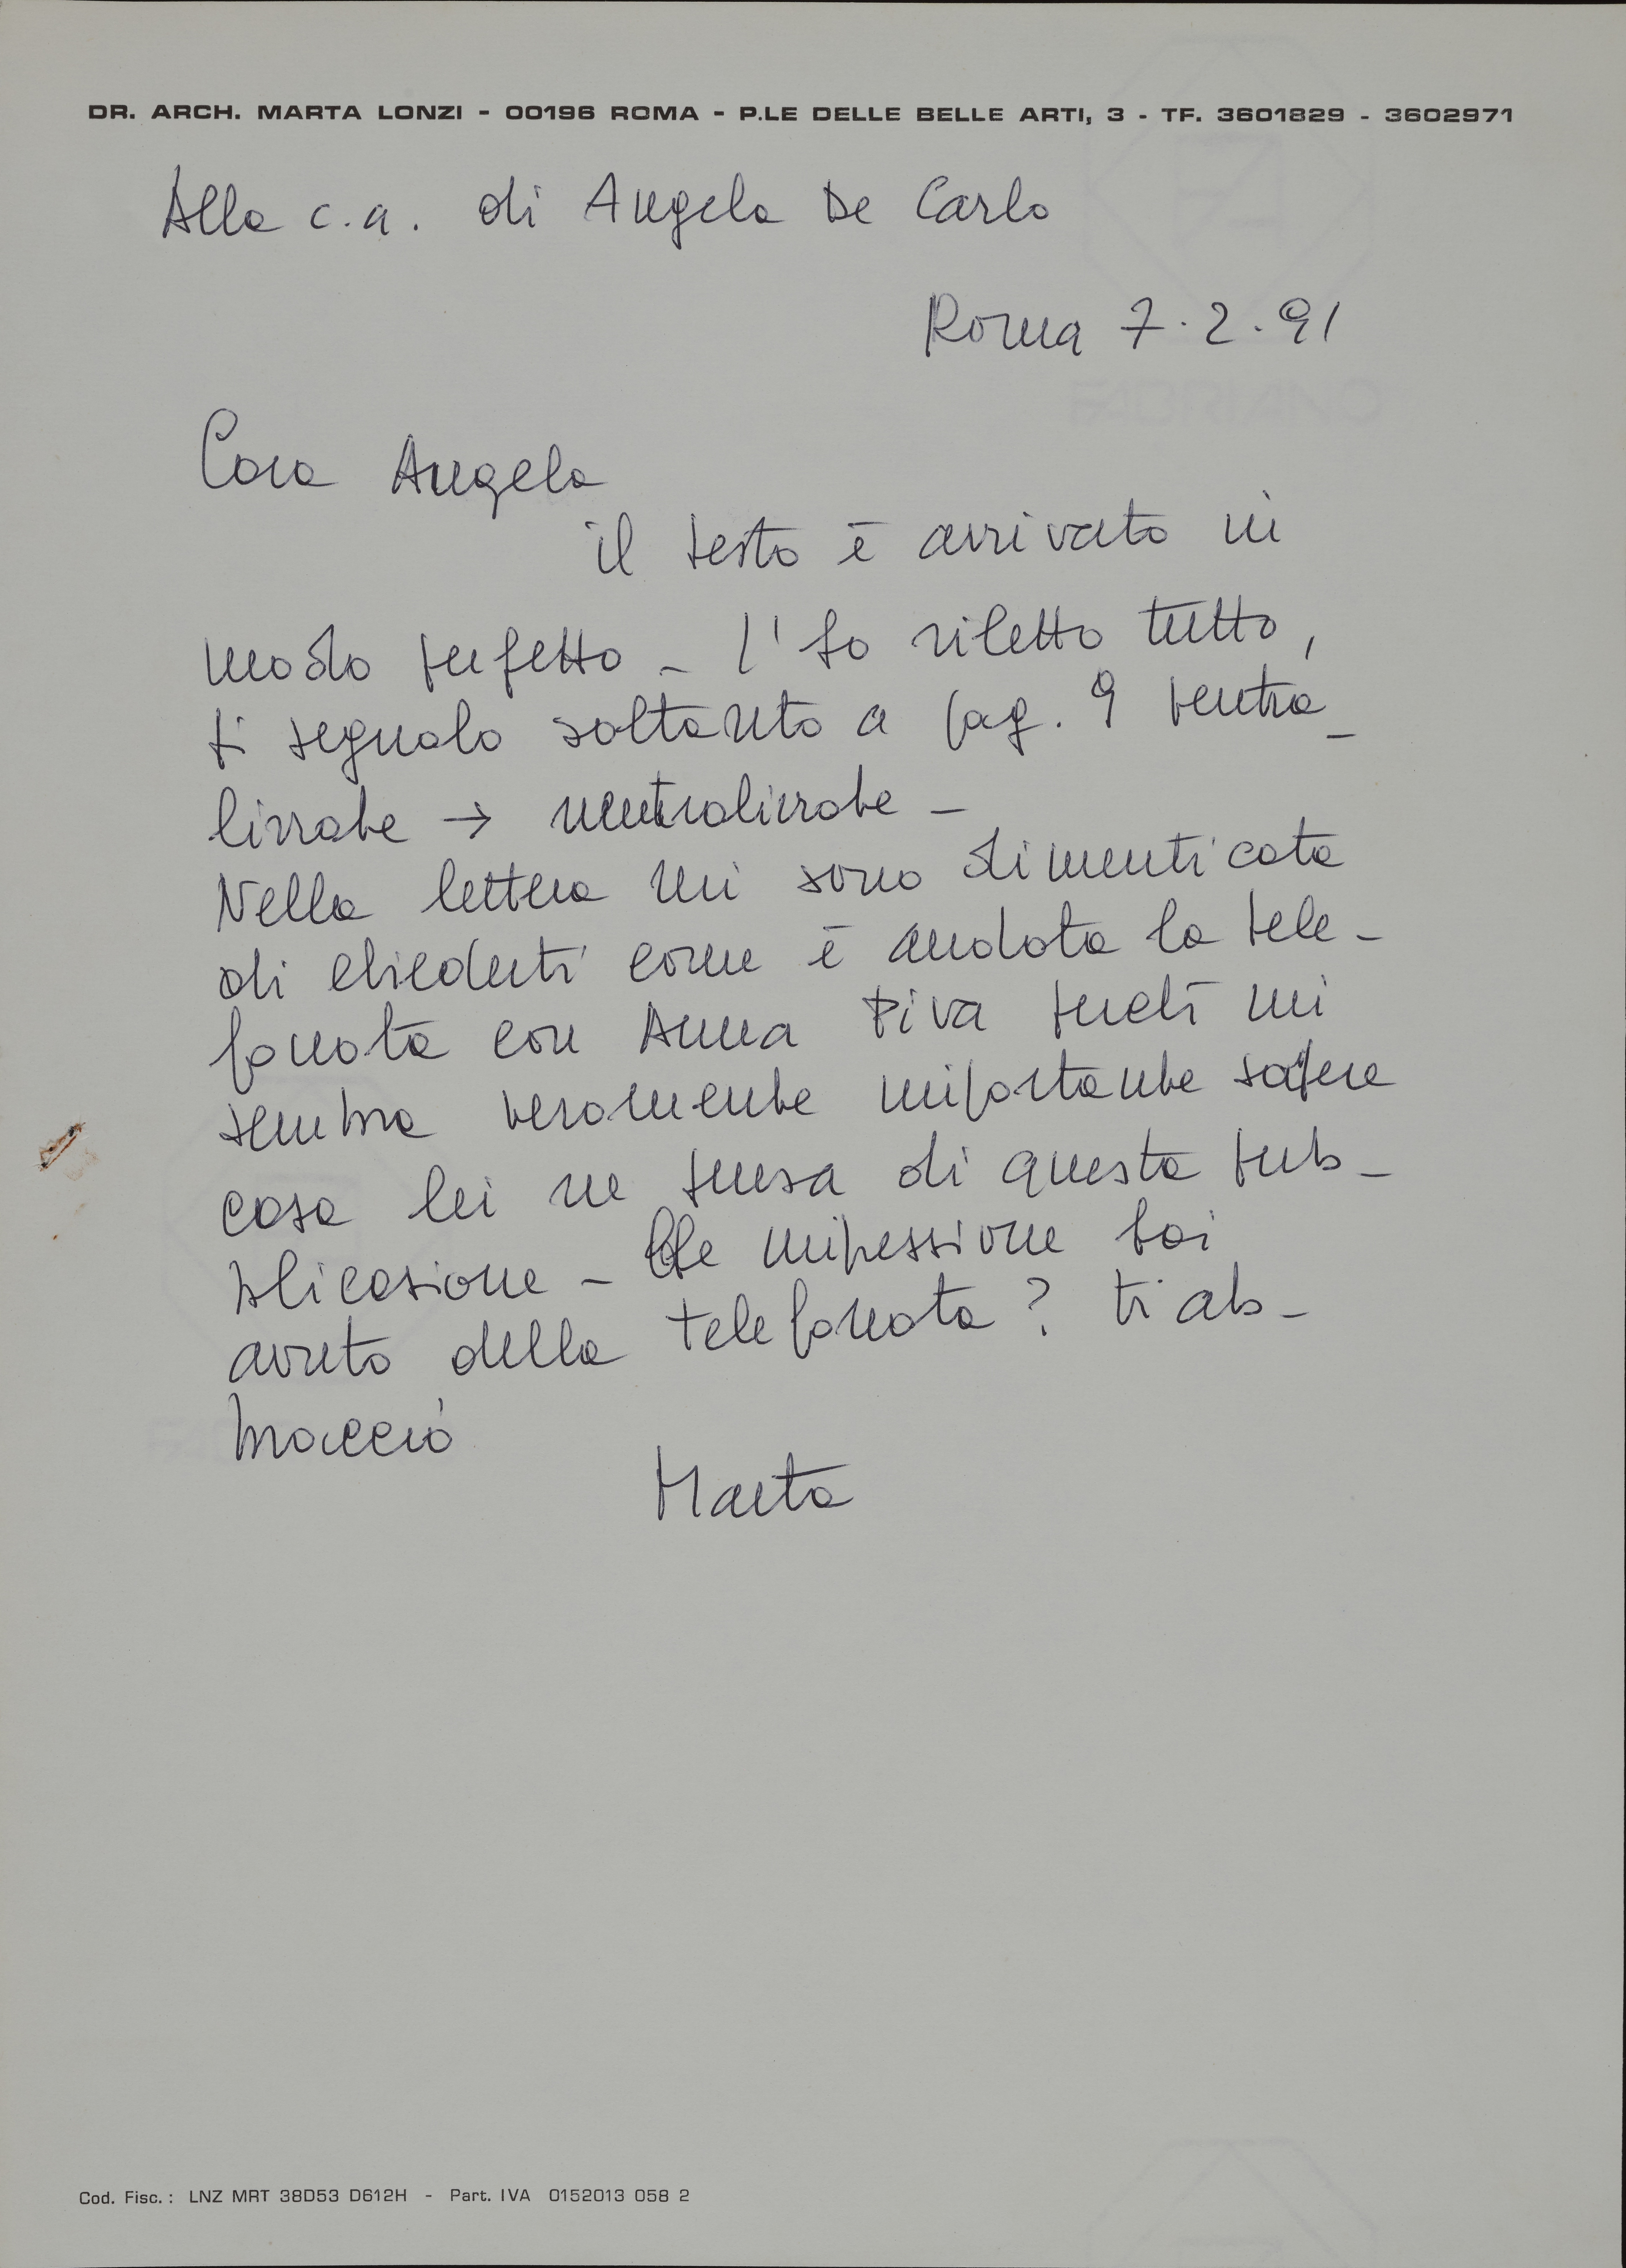 DR. ARCH. MARTA LONZI - 00196 ROMA - P.LE DELLE BELLE ARTI, 3 - TF. 3601829 - 3602971
Alla c.a. di Angela De Carlo
Roma 7.2.91
Cara Angela
il testo è arrivato in
modo perfetto - l'ho riletto tutto,
ti segnalo soltanto a pag. 9 tentra-
lizzate → neutralizzate -
Nella lettera mi sono dimenticata
di chiederti come è andata la tele-
fonata con Anna Piva perché mi
sembra veramente importante sapere
cosa lei ne pensa di questa pub-
blicazione - Che impressione hai
avuto della telefonata? ti ab-
braccio
Marta
Cod. Fisc.: LNZ MRT 38D53 D612H - Part. IVA 0152013 058 2